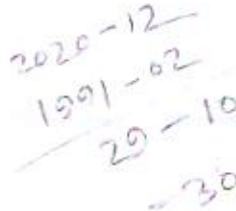 2020-12
1991-02
29-10
-30